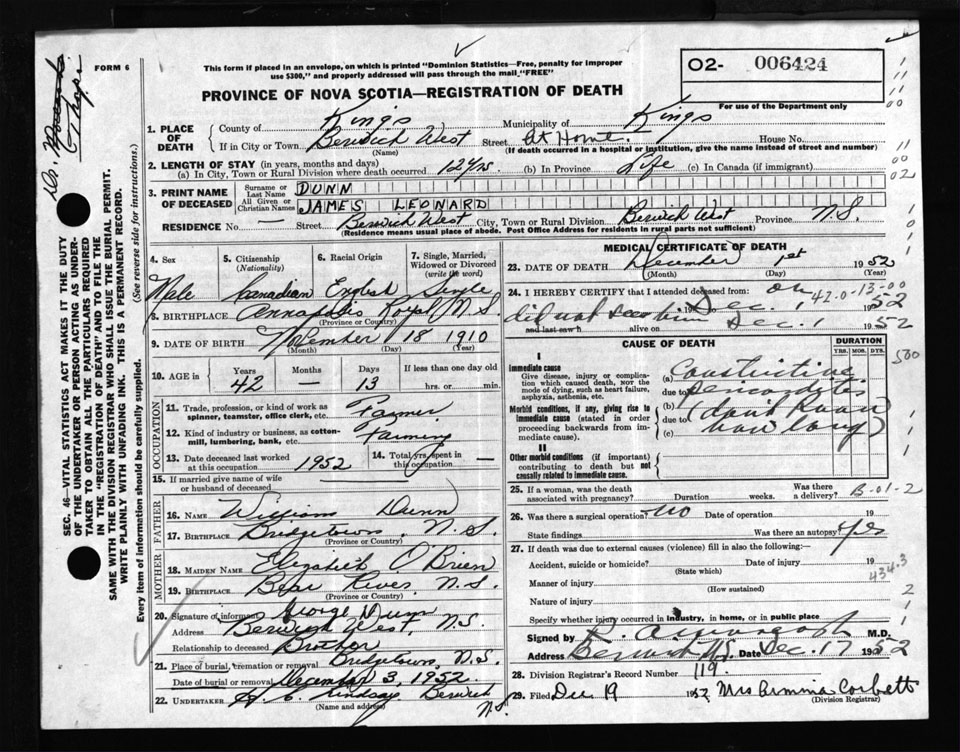 FORM 6
This form if placed in an envelope, on which is printed "Dominion Statistics—Free, penalty for improper
use $300," and properly addressed will pass through the mail "FREE"
O2- 006424
For use of the Department only
PROVINCE OF NOVA SCOTIA—REGISTRATION OF DEATH
1. PLACE OF DEATH
County of Kings Municipality of Kings
If in City or Town Berwick West Street At Home House No.
(Name) (If death occurred in a hospital or institution, give the name instead of street and number)
2. LENGTH OF STAY (in years, months and days)
(a) In City, Town or Rural Division where death occurred 12 yrs (b) In Province Life (c) In Canada (if immigrant)
3. PRINT NAME OF DECEASED
Surname or Last Name DUNN
All Given or Christian Names JAMES LEONARD
RESIDENCE No. — Street Berwick West City, Town or Rural Division Berwick West Province N.S.
(Residence means usual place of abode. Post Office Address for residents in rural parts not sufficient)
4. Sex 5. Citizenship (Nationality) 6. Racial Origin 7. Single, Married, Widowed or Divorced (write the word)
Male Canadian English Single
8. BIRTHPLACE Annapolis Royal, N.S.
(Province or Country)
9. DATE OF BIRTH November 18 1910
(Month) (Day) (Year)
10. AGE in Years Months Days If less than one day old
42 — 13 hrs. or min.
OCCUPATION
11. Trade, profession, or kind of work as spinner, teamster, office clerk, etc. Farmer
12. Kind of industry or business, as cotton-mill, lumbering, bank, etc. Farming
13. Date deceased last worked at this occupation 1952 14. Total yrs. spent in this occupation —
15. If married give name of wife or husband of deceased
FATHER
16. NAME William Dunn
17. BIRTHPLACE Bridgetown, N.S.
(Province or Country)
MOTHER
18. MAIDEN NAME Elizabeth O'Brien
19. BIRTHPLACE Bear River, N.S.
(Province or Country)
20. Signature of informant George Dunn
Address Berwick West, N.S.
Relationship to deceased Brother
21. Place of burial, cremation or removal Bridgetown, N.S.
Date of burial or removal December 3, 1952
22. UNDERTAKER Lindsay Berwick
(Name and address) N.S.
MEDICAL CERTIFICATE OF DEATH
23. DATE OF DEATH December 1st 1952
(Month) (Day) (Year)
24. I HEREBY CERTIFY that I attended deceased from: on
42-0-13-00
did not see him Dec. 1 1952
and last saw h alive on Dec. 1 1952
CAUSE OF DEATH
DURATION
YRS. MOS. DYS.
I
Immediate cause
Give disease, injury or complication which caused death, Not the mode of dying, such as heart failure, asphyxia, asthenia, etc.
(a) Constrictive
due to pericarditis
Morbid conditions, if any, giving rise to immediate cause (stated in order proceeding backwards from immediate cause).
(b) (dont know
due to how long)
(c)
II
Other morbid conditions (if important) contributing to death but not causally related to immediate cause.
25. If a woman, was the death associated with pregnancy? Duration weeks. Was there a delivery? B-01-2
26. Was there a surgical operation? no Date of operation
State findings Was there an autopsy? Yes
27. If death was due to external causes (violence) fill in also the following:—
Accident, suicide or homicide? Date of injury 19
(State which)
434.3
Manner of injury
(How sustained)
Nature of injury
Specify whether injury occurred in industry, in home, or in public place
Signed by M.D.
Address Berwick N.S. Date Dec. 17 1952
28. Division Registrar's Record Number 119.
29. Filed Dec 19 1952 Mrs Corbett
(Division Registrar)
SEC. 46—VITAL STATISTICS ACT MAKES IT THE DUTY
OF THE UNDERTAKER OR PERSON ACTING AS UNDER-
TAKER TO OBTAIN ALL THE PARTICULARS REQUIRED
IN THE "REGISTRATION OF DEATH" AND TO FILE THE
SAME WITH THE DIVISION REGISTRAR WHO SHALL ISSUE THE BURIAL PERMIT.
WRITE PLAINLY WITH UNFADING INK. THIS IS A PERMANENT RECORD.
Every item of information should be carefully supplied. (See reverse side for instructions.)